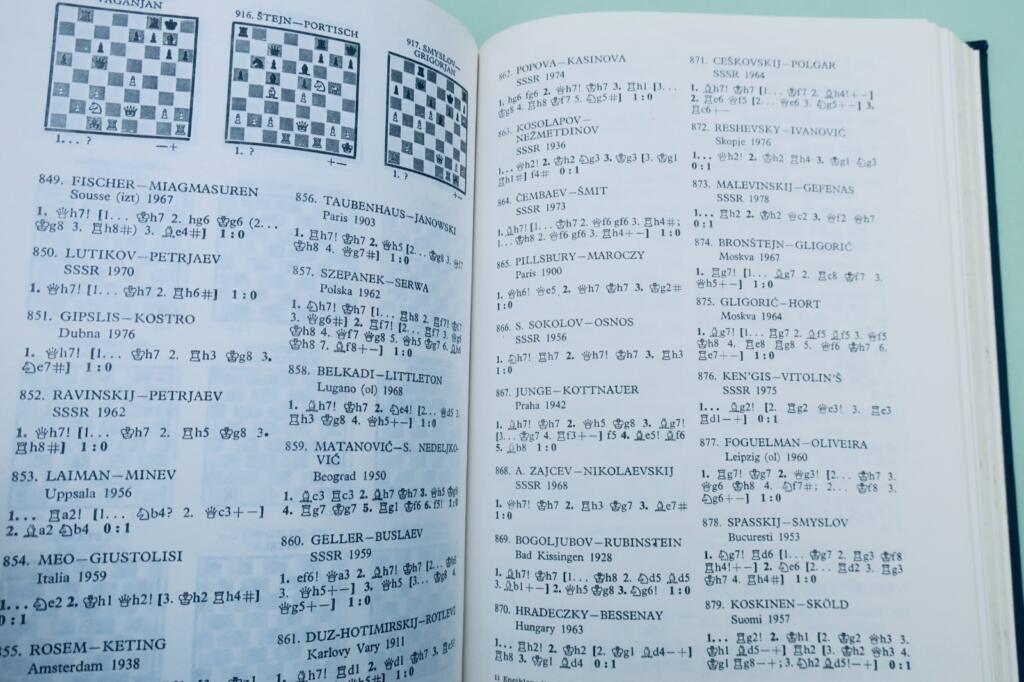 VAGANJAN
1... ? —+
916. ŠTEJN—PORTISCH
1. ? +—
917. SMYSLOV—
GRIGORJAN
1. ? +—
849. FISCHER—MIAGMASUREN
Sousse (izt) 1967
1. ♕h7! [1... ♔h7 2. hg6 ♔g6 (2...
♔g8 3. ♖h8#) 3. ♗e4#] 1:0
850. LUTIKOV—PETRJAEV
SSSR 1970
1. ♕h7! [1... ♔h7 2. ♖h6#] 1:0
851. GIPSLIS—KOSTRO
Dubna 1976
1. ♕h7! [1... ♔h7 2. ♖h3 ♔g8 3.
♘e7#] 1:0
852. RAVINSKIJ—PETRJAEV
SSSR 1962
1. ♕h7! [1... ♔h7 2. ♖h5 ♔g8 3.
♖h8#] 1:0
853. LAIMAN—MINEV
Uppsala 1956
1... ♖a2! [1... ♘b4? 2. ♕c3+—]
2. ♗a2 ♘b4 0:1
854. MEO—GIUSTOLISI
Italia 1959
1... ♘e2 2. ♔h1 ♕h2! [3. ♔h2 ♖h4#]
0:1
855. ROSEM—KETING
Amsterdam 1938
856. TAUBENHAUS—JANOWSKI
Paris 1903
1. ♖h7! ♔h7 2. ♕h5 [2... ♔g8 3. ♕f7
♔h8 4. ♕g7#] 1:0
857. SZEPANEK—SERWA
Polska 1962
1. ♘h7! ♔h7 [1... ♖h8 2. ♖f7! ♔f7
3. ♕g6#] 2. ♖f7! [2... ♖f7 3. ♕g6
♔h8 4. ♕f7 ♕g8 5. ♕h5 ♔g7 6. ♗h6
♔h8 7. ♗f8+—] 1:0
858. BELKADI—LITTLETON
Lugano (ol) 1968
1. ♗h7! ♔h7 2. ♘e4! [2... d5 3.
♖h3 ♔g8 4. ♕h5+—] 1:0
859. MATANOVIĆ—S. NEDELJKO-
VIĆ
Beograd 1950
1. ♗c3 ♖c3 2. ♗h7 ♔h7 3. ♕h5 ♔g8
4. ♖g7 ♔g7 5. ♖g1 ♔f6 6. f5! 1:0
860. GELLER—BUSLAEV
SSSR 1959
1. ef6! ♕a3 2. ♗h7! ♔h7 [2... ♔h8
3. ♕h5+—] 3. ♕h5 [3... ♔g8 4.
♕g5+—] 1:0
861. DUZ-HOTIMIRSKIJ—ROTLEVI
Karlovy Vary 1911
862. POPOVA—KASINOVA
SSSR 1974
1. hg6 fg6 2. ♕h7! ♔h7 3. ♖h1 [3...
♔g8 4. ♖h8 ♔f7 5. ♘g5#] 1:0
863. KOSOLAPOV—
NEŽMETDINOV
SSSR 1936
1... ♕h2! 2. ♔h2 ♘g3 3. ♔g3 [3. ♔g1
♖h1#] f4# 0:1
864. ČEMBAEV—ŠMIT
SSSR 1973
1. ♗h7! [1... ♔h7 2. ♕f6 gf6 3. ♖h4#;
1... ♔h8 2. ♕f6 gf6 3. ♖h4+—] 1:0
865. PILLSBURY—MAROCZY
Paris 1900
1. ♕h6! ♕e5 2. ♕h7 ♔h7 3. ♔g2#
1:0
866. S. SOKOLOV—OSNOS
SSSR 1956
1. ♘h7! ♖h7 2. ♕h7! ♔h7 3. ♖h3
1:0
867. JUNGE—KOTTNAUER
Praha 1942
1. ♗h7! ♔h7 2. ♕h5 ♔g8 3. ♗g7!
[3... ♔g7 4. ♖f3+—] f5 4. ♗e5! ♗f6
5. ♗b8 1:0
868. A. ZAJCEV—NIKOLAEVSKIJ
SSSR 1968
1. ♕h7! ♔h7 2. ♖h3 ♔g7 3. ♗e7#
1:0
869. BOGOLJUBOV—RUBINSTEIN
Bad Kissingen 1928
1. ♗h7! ♔h7 [1... ♔h8 2. ♘d5 ♗d5
3. ♗b1+—] 2. ♕h5 ♔g8 3. ♘g6! 1:0
870. HRADECZKY—BESSENAY
Hungary 1963
1... ♖h2! 2. ♔h2 [2. ♔g1 ♗d4—+]
♖h8 3. ♔g1 ♗d4 0:1
11
871. CEŠKOVSKIJ—POLGAR
SSSR 1964
1. ♗h7! [1... ♔h7 2. ♗h4!+—]
2. ♖e6 ♕f5 [2... ♕e6 3. ♘g5+—] 3.
♖c6+—
872. RESHEVSKY—IVANOVIĆ
Skopje 1976
1... ♕h2! 2. ♔h2 ♖h4 3. ♔g1 ♘g3
0:1
873. MALEVINSKIJ—GEFENAS
SSSR 1978
1... ♖h2 2. ♔h2 ♕c2 3. ♕f2 ♕h7
0:1
874. BRONŠTEJN—GLIGORIĆ
Moskva 1967
1. ♖g7! [1... ♗g7 2. ♖c8 ♔f7 3.
♕h5+—] 1:0
875. GLIGORIĆ—HORT
Moskva 1964
1. ♗g7! [1... ♖g7 2. ♗f5 ♗f5 3. ♕f5
♔h8 4. ♖e8 ♖g8 5. ♕f6 ♔h7 6.
♖e7+—] 1:0
876. KEN'GIS—VITOLIN'Š
SSSR 1975
1... ♗g2! [2. ♖g2 ♕e3! 3. ♖e3
♖d1—+] 0:1
877. FOGUELMAN—OLIVEIRA
Leipzig (ol) 1960
1. ♖g7! ♔g7 2. ♕g3! [2... ♔h7 3.
♕g6 ♔h8 4. ♘f7#; 2... ♔f8 3.
♘g6+—] 1:0
878. SPASSKIJ—SMYSLOV
Bucuresti 1953
1. ♘g7! ♖d6 [1... ♔g7 2. ♖g3 ♔f8
♖h4!+—] 2. ♘e6 [2... ♖d2 3. ♖g3
♔h7 4. ♖h4#] 1:0
879. KOSKINEN—SKÖLD
Suomi 1957
1... ♖g2! 2. ♔h1 [2. ♔g2 ♕h3 3.
♔h1 ♗d5—+] ♖h2 [3. ♔h2 ♕h3 4.
♔g1 ♖g8—+; 3. ♘h2 ♗d5!—+] 0:1